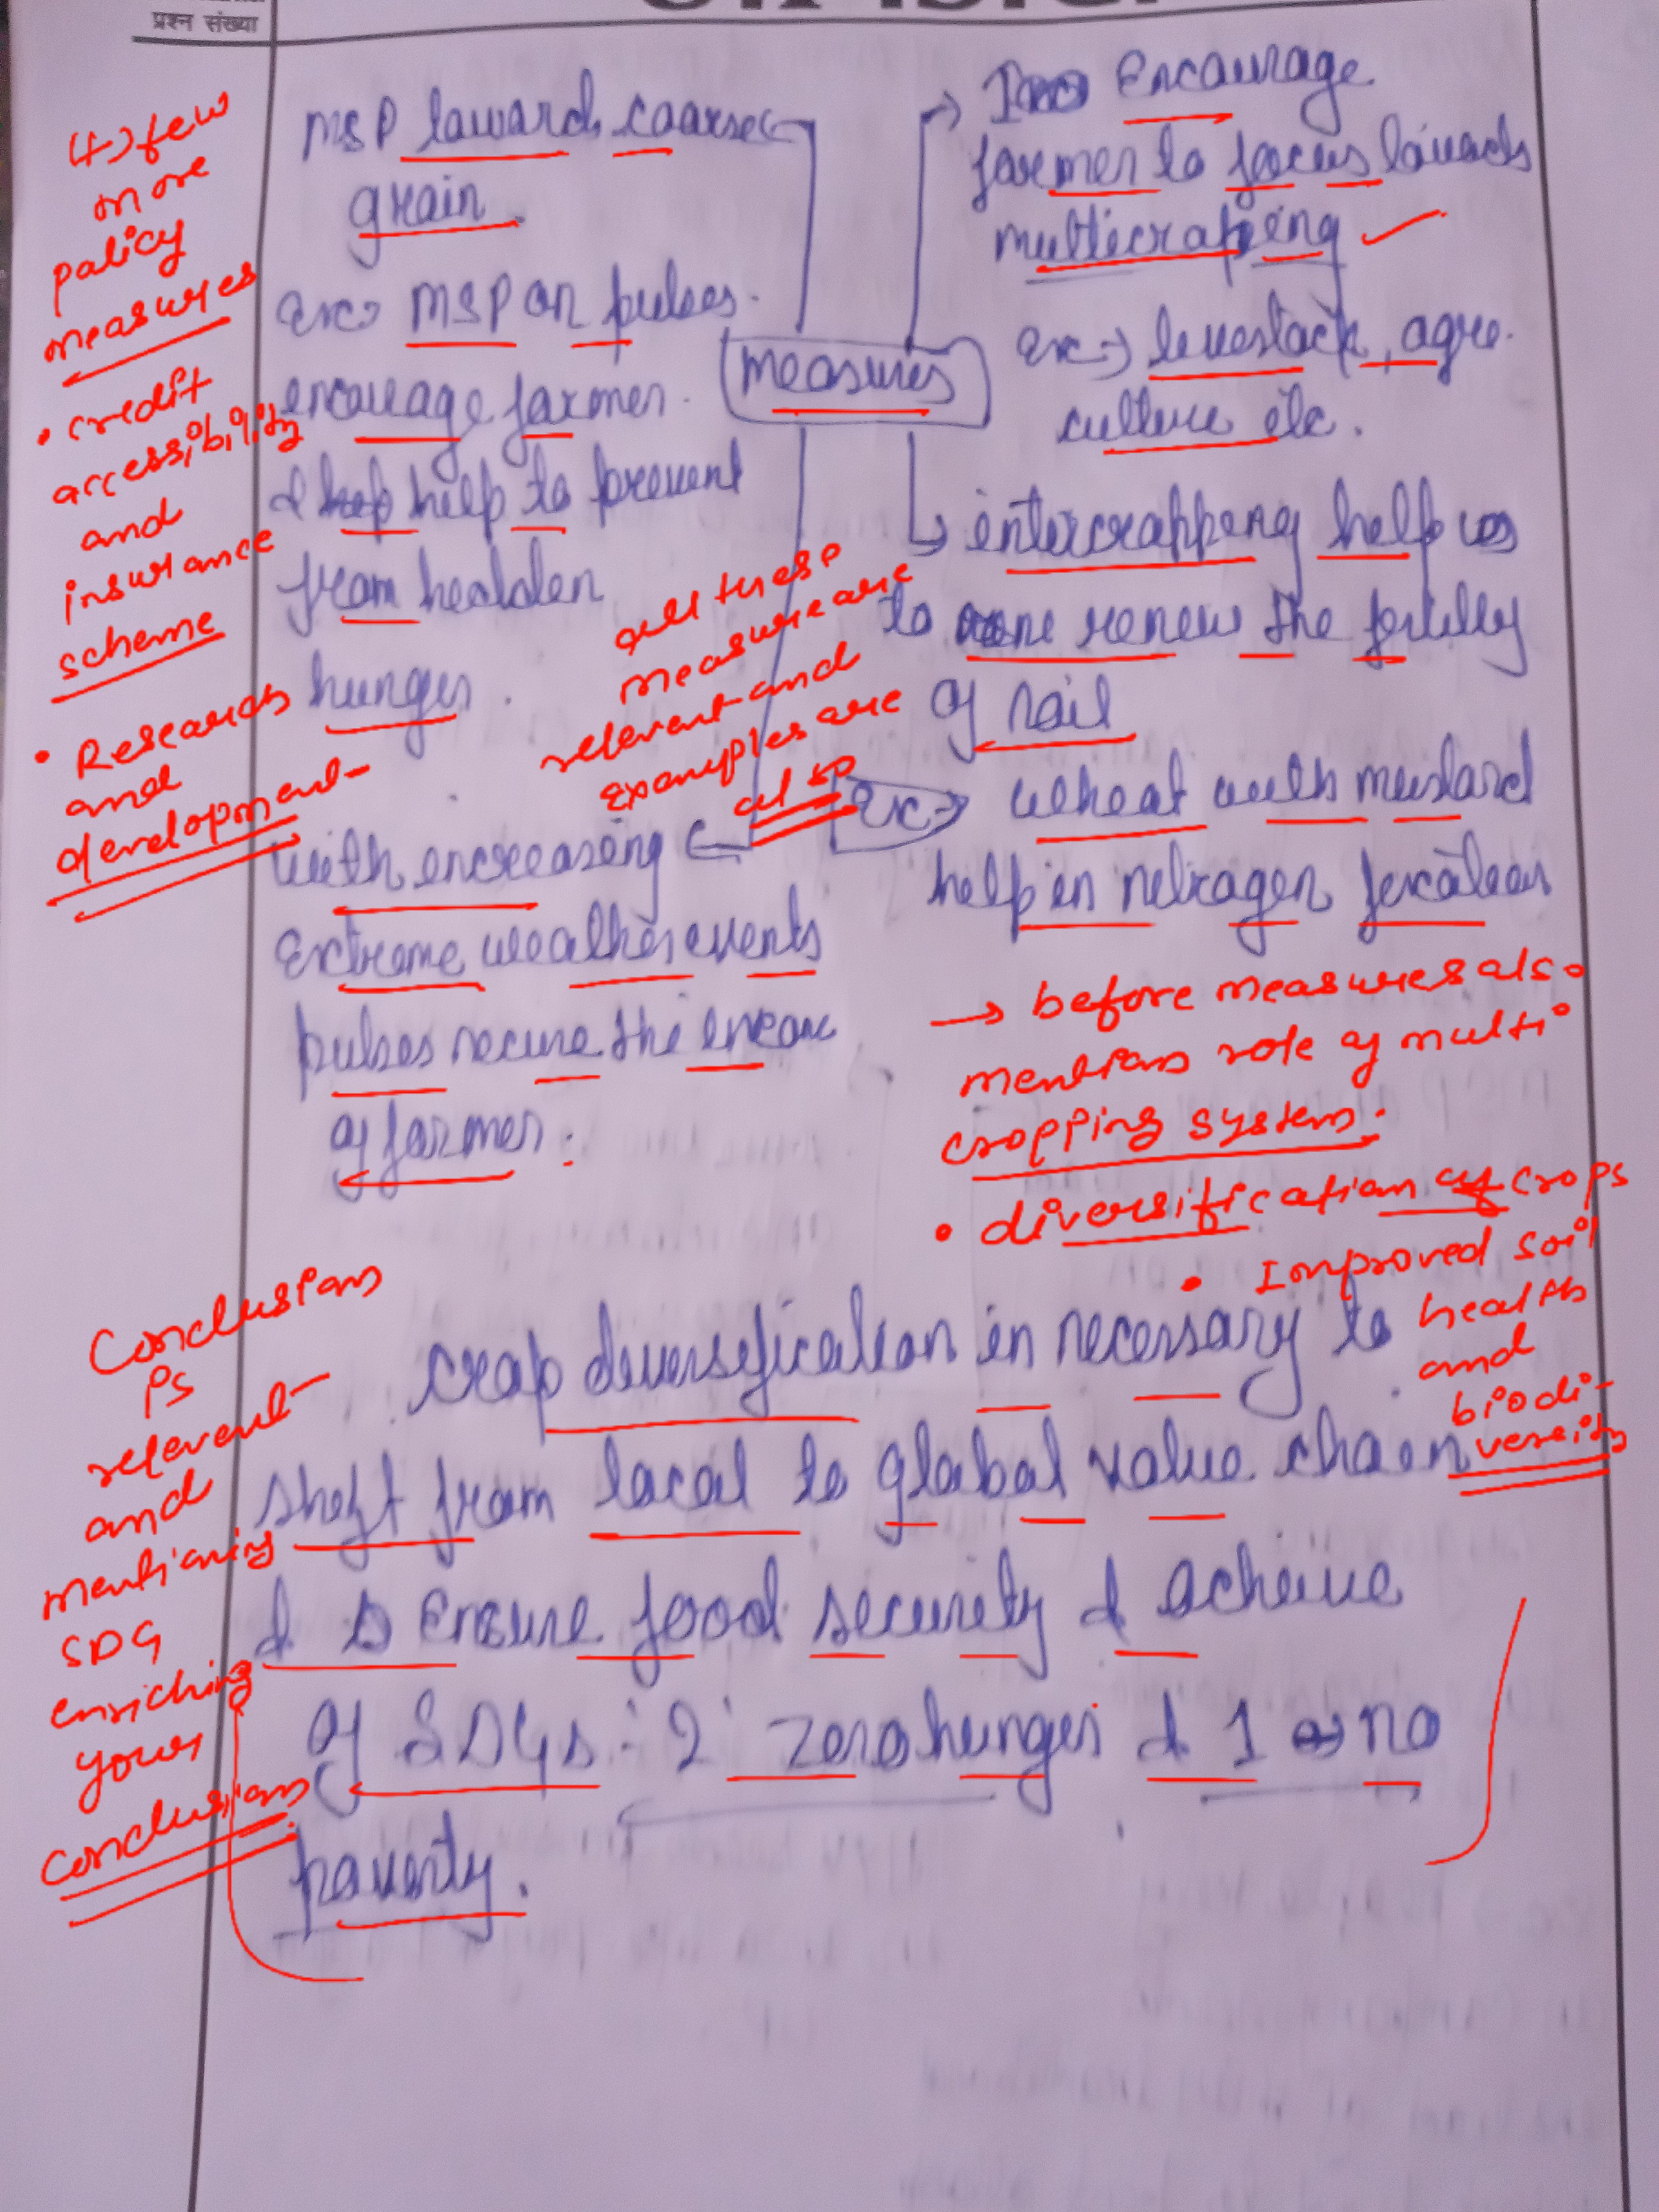 प्रश्न संख्या
MSP toward coarse
grain.
Ex→ MSP on pulses.
encourage farmer.
& help to prevent
from hedden
hunger.
with encreasing
Extreme weather events
pulses secure the
of farmer.
measures
Encourage
farmer to focus towards
multicropping
Ex→ levestock, agre.
culture etc.
entercropping help us
to renew the fertility
of soil
Ex→ wheat with mustard
help in netrogen
crop deversefication is necessary to
sheft from local to global value chaen
& Ensure food security & acheive
of SDGs:- 2 zero hunger & 1 no
poverty.
(+) few
more
policy
measures
• credit
accessibility
and
insurance
scheme
• Research
and
development
all these
measure are
relevent and
examples are
also
→ before measures also
mention role of multi
cropping system.
• diversification of crops
• Improved soil
health
and
biodi-
versity
Conclusion
is
relevent
and
mentioning
SDG
enriching
your
conclusion